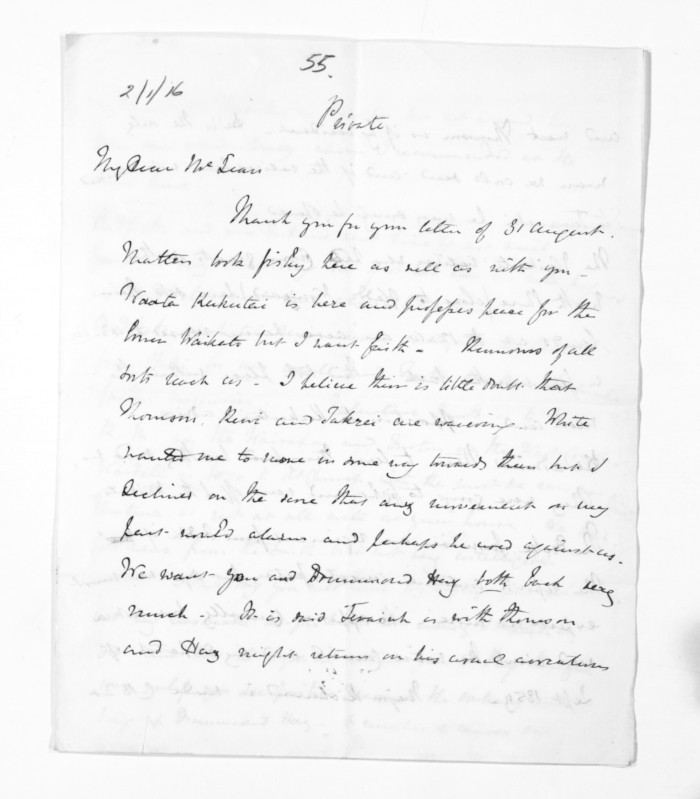 55.
2/1/16
Private
My Dear McLean
Thank you for your letter of 31 August.
Matters look fishy here as well as with you -
Waata Kukutai is here and professes peace for the
lower Waikato but I want faith - Rumours of all
sorts reach us - I believe there is little doubt that
Thomson, Rewi and are wavering - White
wanted me to move in some way towards them but I
declined on the score that any movement on my
part would alarm and perhaps be used against us -
We want you and Drummond Hay both back very
much - It is said is with Thomson
and Hay might return on his usual avocations